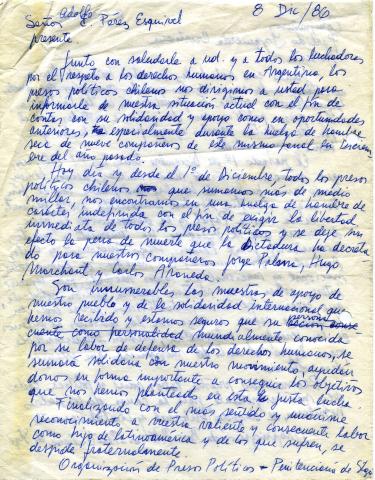 8 Dic/86
Señor Adolfo Pérez Esquivel
presente
Junto con saludarle a ud. y a todos los luchadores
por el respeto a los derechos humanos en Argentina, los
presos políticos chilenos nos dirigimos a usted para
informarle de nuestra situación actual con el fin de
contar con su solidaridad y apoyo como en oportunidades
anteriores, especialmente durante la huelga de hambre
seca de nueve compañeros de este mismo penal en Diciem
bre del año pasado.
Hoy día y desde el 1º de Diciembre, todos los presos
políticos chilenos que sumamos más de medio
millar, nos encontramos en una huelga de hambre de
carácter indefinida con el fin de exigir la libertad
inmediata de todos los presos políticos y se deje sin
efecto la pena de muerte que la Dictadura ha decreta
do para nuestros compañeros Jorge Palma, Hugo
Marchant y Carlos Araneda.
Son innumerables las muestras de apoyo de
nuestro pueblo y de la solidaridad internacional que
hemos recibido y estamos seguros que su
cuente como personalidad mundialmente conocida
por su labor de defensa de los derechos humanos, se
sumará solidaria con nuestro movimiento, ayudán
donos en forma importante a conseguir los objetivos
que nos hemos planteado en esta la justa lucha.
Finalizando con el más sentido y unánime
reconocimiento a vuestra valiente y consecuente labor
como hijo de latinoamérica y de los que sufren, se
despide fraternalmente.
Organización de Presos Políticos - Penitenciaría de Stgo